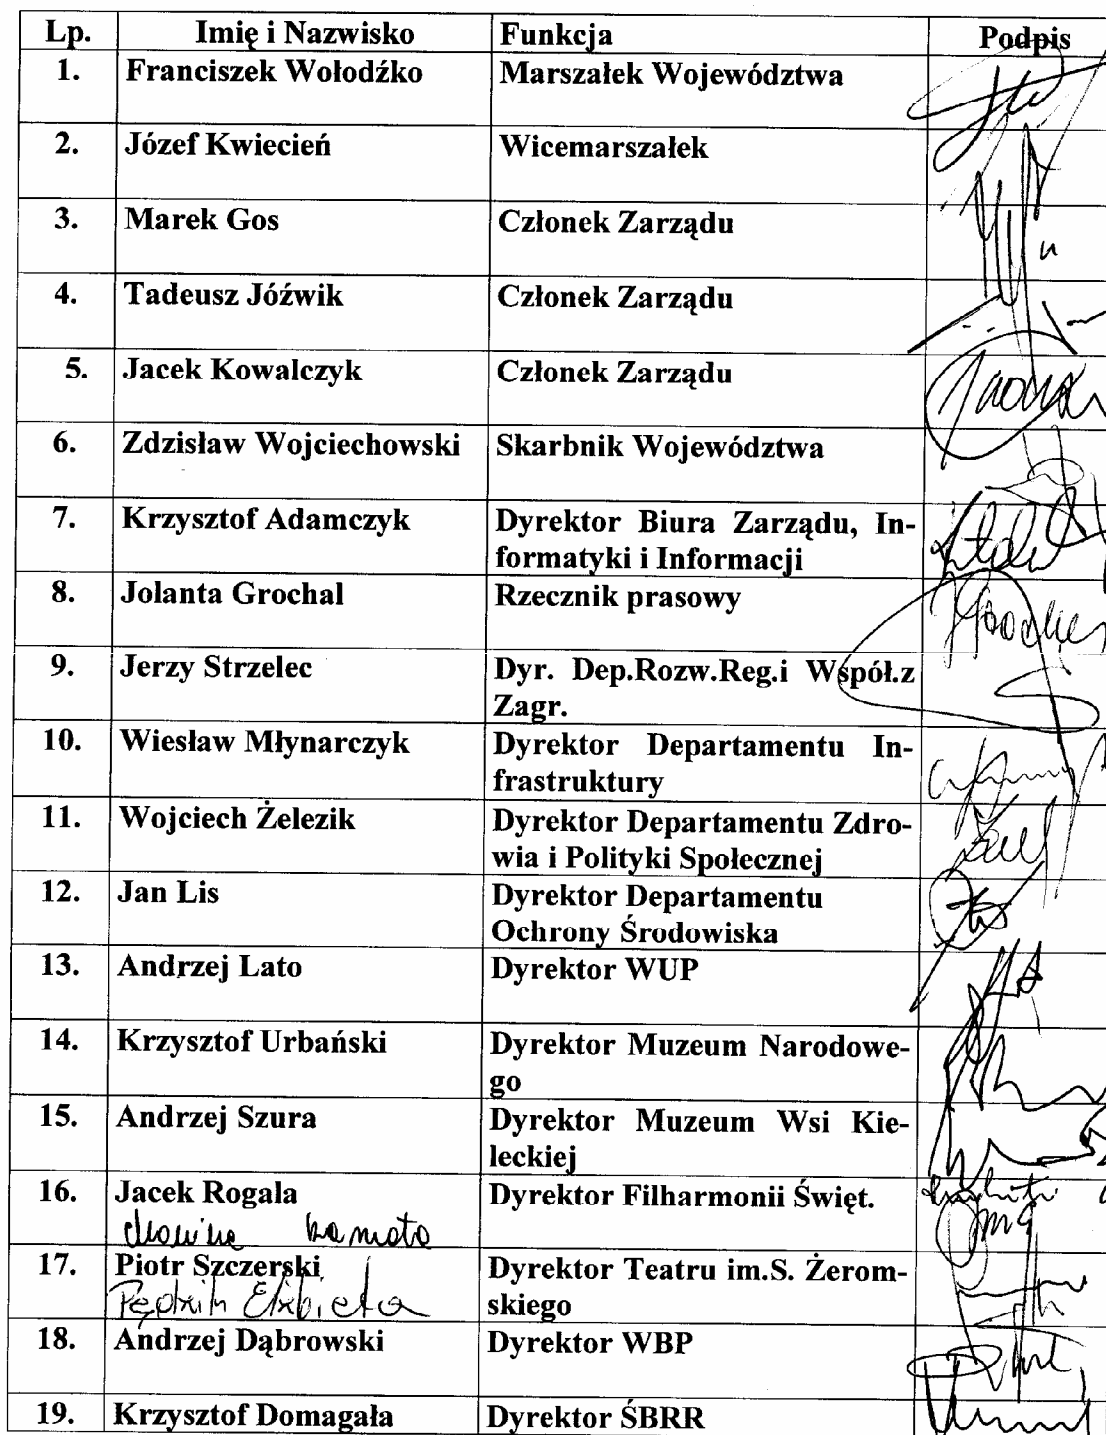 Lp. Imię i Nazwisko Funkcja Podpis
1. Franciszek Wołodźko Marszałek Województwa
2. Józef Kwiecień Wicemarszałek
3. Marek Gos Członek Zarządu
4. Tadeusz Jóźwik Członek Zarządu
5. Jacek Kowalczyk Członek Zarządu
6. Zdzisław Wojciechowski Skarbnik Województwa
7. Krzysztof Adamczyk Dyrektor Biura Zarządu, In-
formatyki i Informacji
8. Jolanta Grochal Rzecznik prasowy
9. Jerzy Strzelec Dyr. Dep.Rozw.Reg.i Współ.z
Zagr.
10. Wiesław Młynarczyk Dyrektor Departamentu In-
frastruktury
11. Wojciech Żelezik Dyrektor Departamentu Zdro-
wia i Polityki Społecznej
12. Jan Lis Dyrektor Departamentu
Ochrony Środowiska
13. Andrzej Lato Dyrektor WUP
14. Krzysztof Urbański Dyrektor Muzeum Narodowe-
go
15. Andrzej Szura Dyrektor Muzeum Wsi Kie-
leckiej
16. Jacek Rogala Dyrektor Filharmonii Święt.
17. Piotr Szczerski Dyrektor Teatru im.S. Żerom-
skiego
Elżbieta
18. Andrzej Dąbrowski Dyrektor WBP
19. Krzysztof Domagała Dyrektor ŚBRR